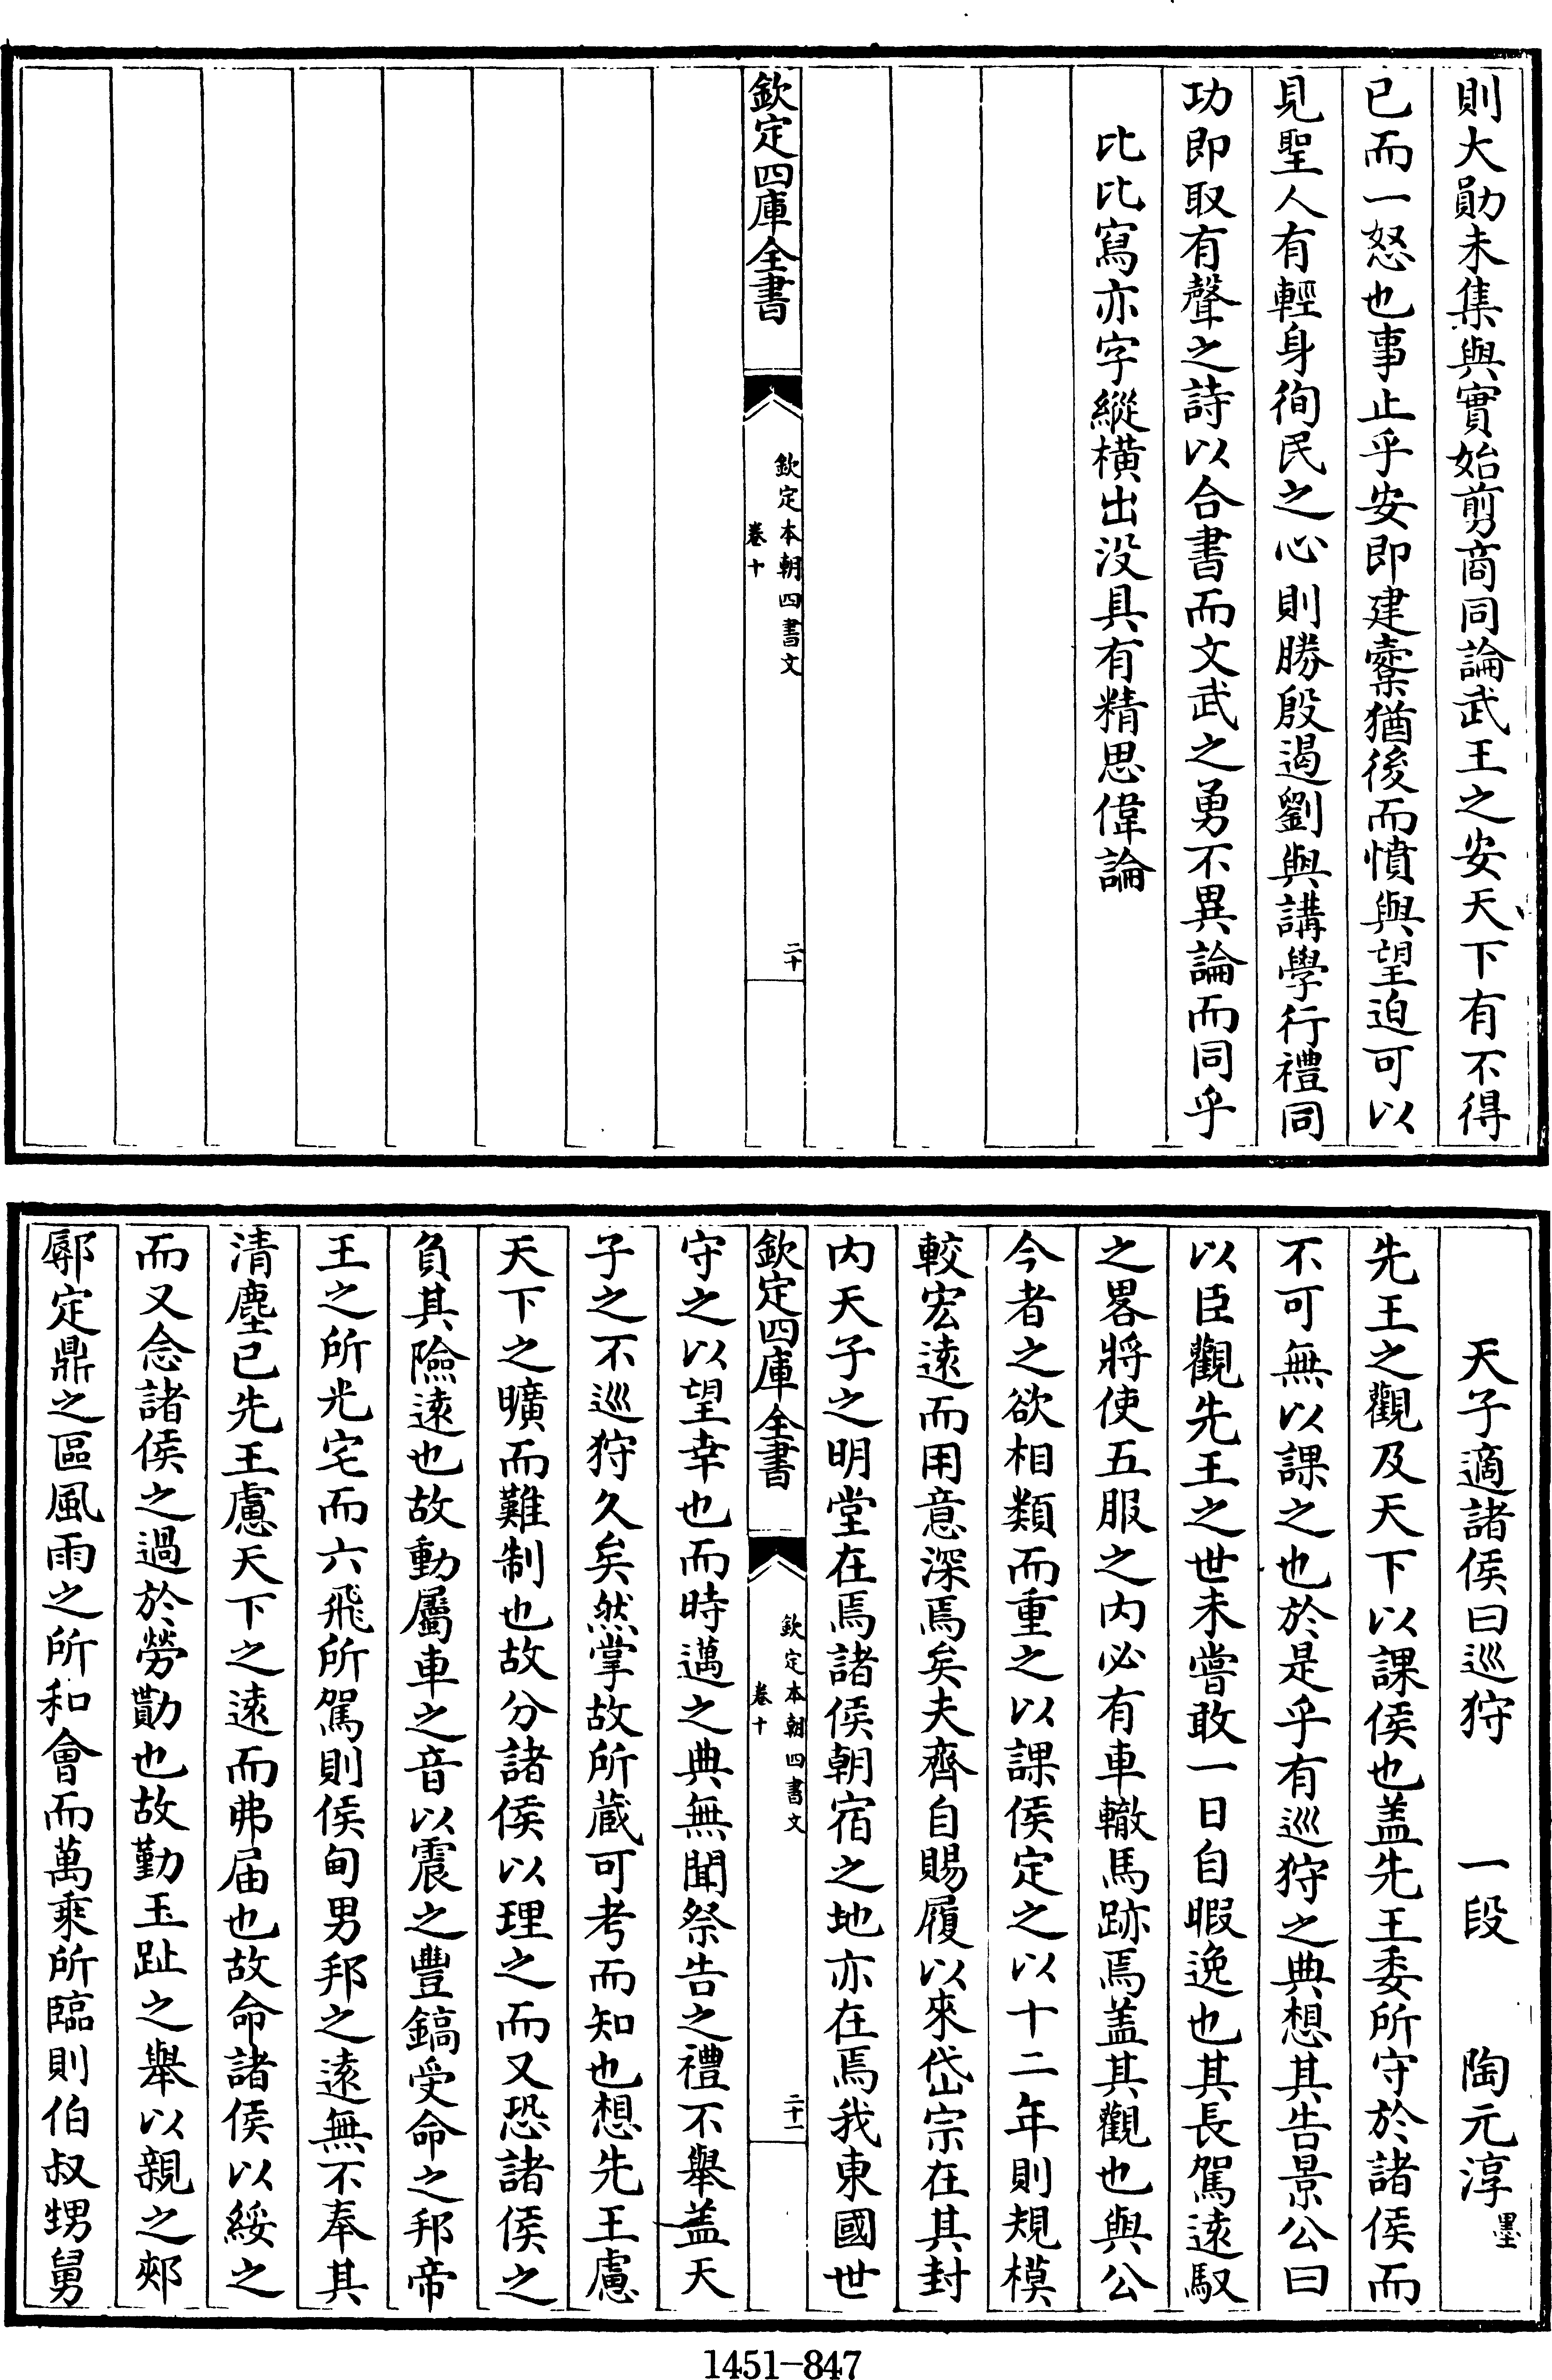 則大勛未集與實始剪商同論武王之安天下有不得
已而一怒也事止乎安即建櫜猶後而憤與望迫可以
見聖人有輕身徇民之心則勝殷遏劉與講學行禮同
功即取有聲之詩以合書而文武之勇不異論而同乎
比比寫亦字縱橫出没具有精思偉論
欽定四庫全書
欽定本朝四書文
卷十
二十
天子適諸侯曰巡狩 一段 陶元淳墨
先王之觀及天下以課侯也盖先王委所守於諸侯而
不可無以課之也於是乎有巡狩之典想其告景公曰
以臣觀先王之世未嘗敢一日自暇逸也其長駕遠馭
之畧將使五服之内必有車轍馬跡焉盖其觀也與公
今者之欲相類而重之以課侯定之以十二年則規模
較宏遠而用意深焉矣夫齊自賜履以來岱宗在其封
内天子之明堂在焉諸侯朝宿之地亦在焉我東國世
欽定四庫全書
欽定本朝四書文
卷十
二十一
守之以望幸也而時邁之典無聞祭告之禮不舉盖天
子之不巡狩久矣然掌故所蔵可考而知也想先王慮
天下之曠而難制也故分諸侯以理之而又恐諸侯之
負其險遠也故動屬車之音以震之豐鎬受命之邦帝
王之所光宅而六飛所駕則侯甸男邦之遠無不奉其
清塵已先王慮天下之遠而弗届也故命諸侯以綏之
而又念諸侯之過於勞勩也故勤玉趾之舉以親之郟
鄏定鼎之區風雨之所和會而萬乘所臨則伯叔甥舅
1451-847